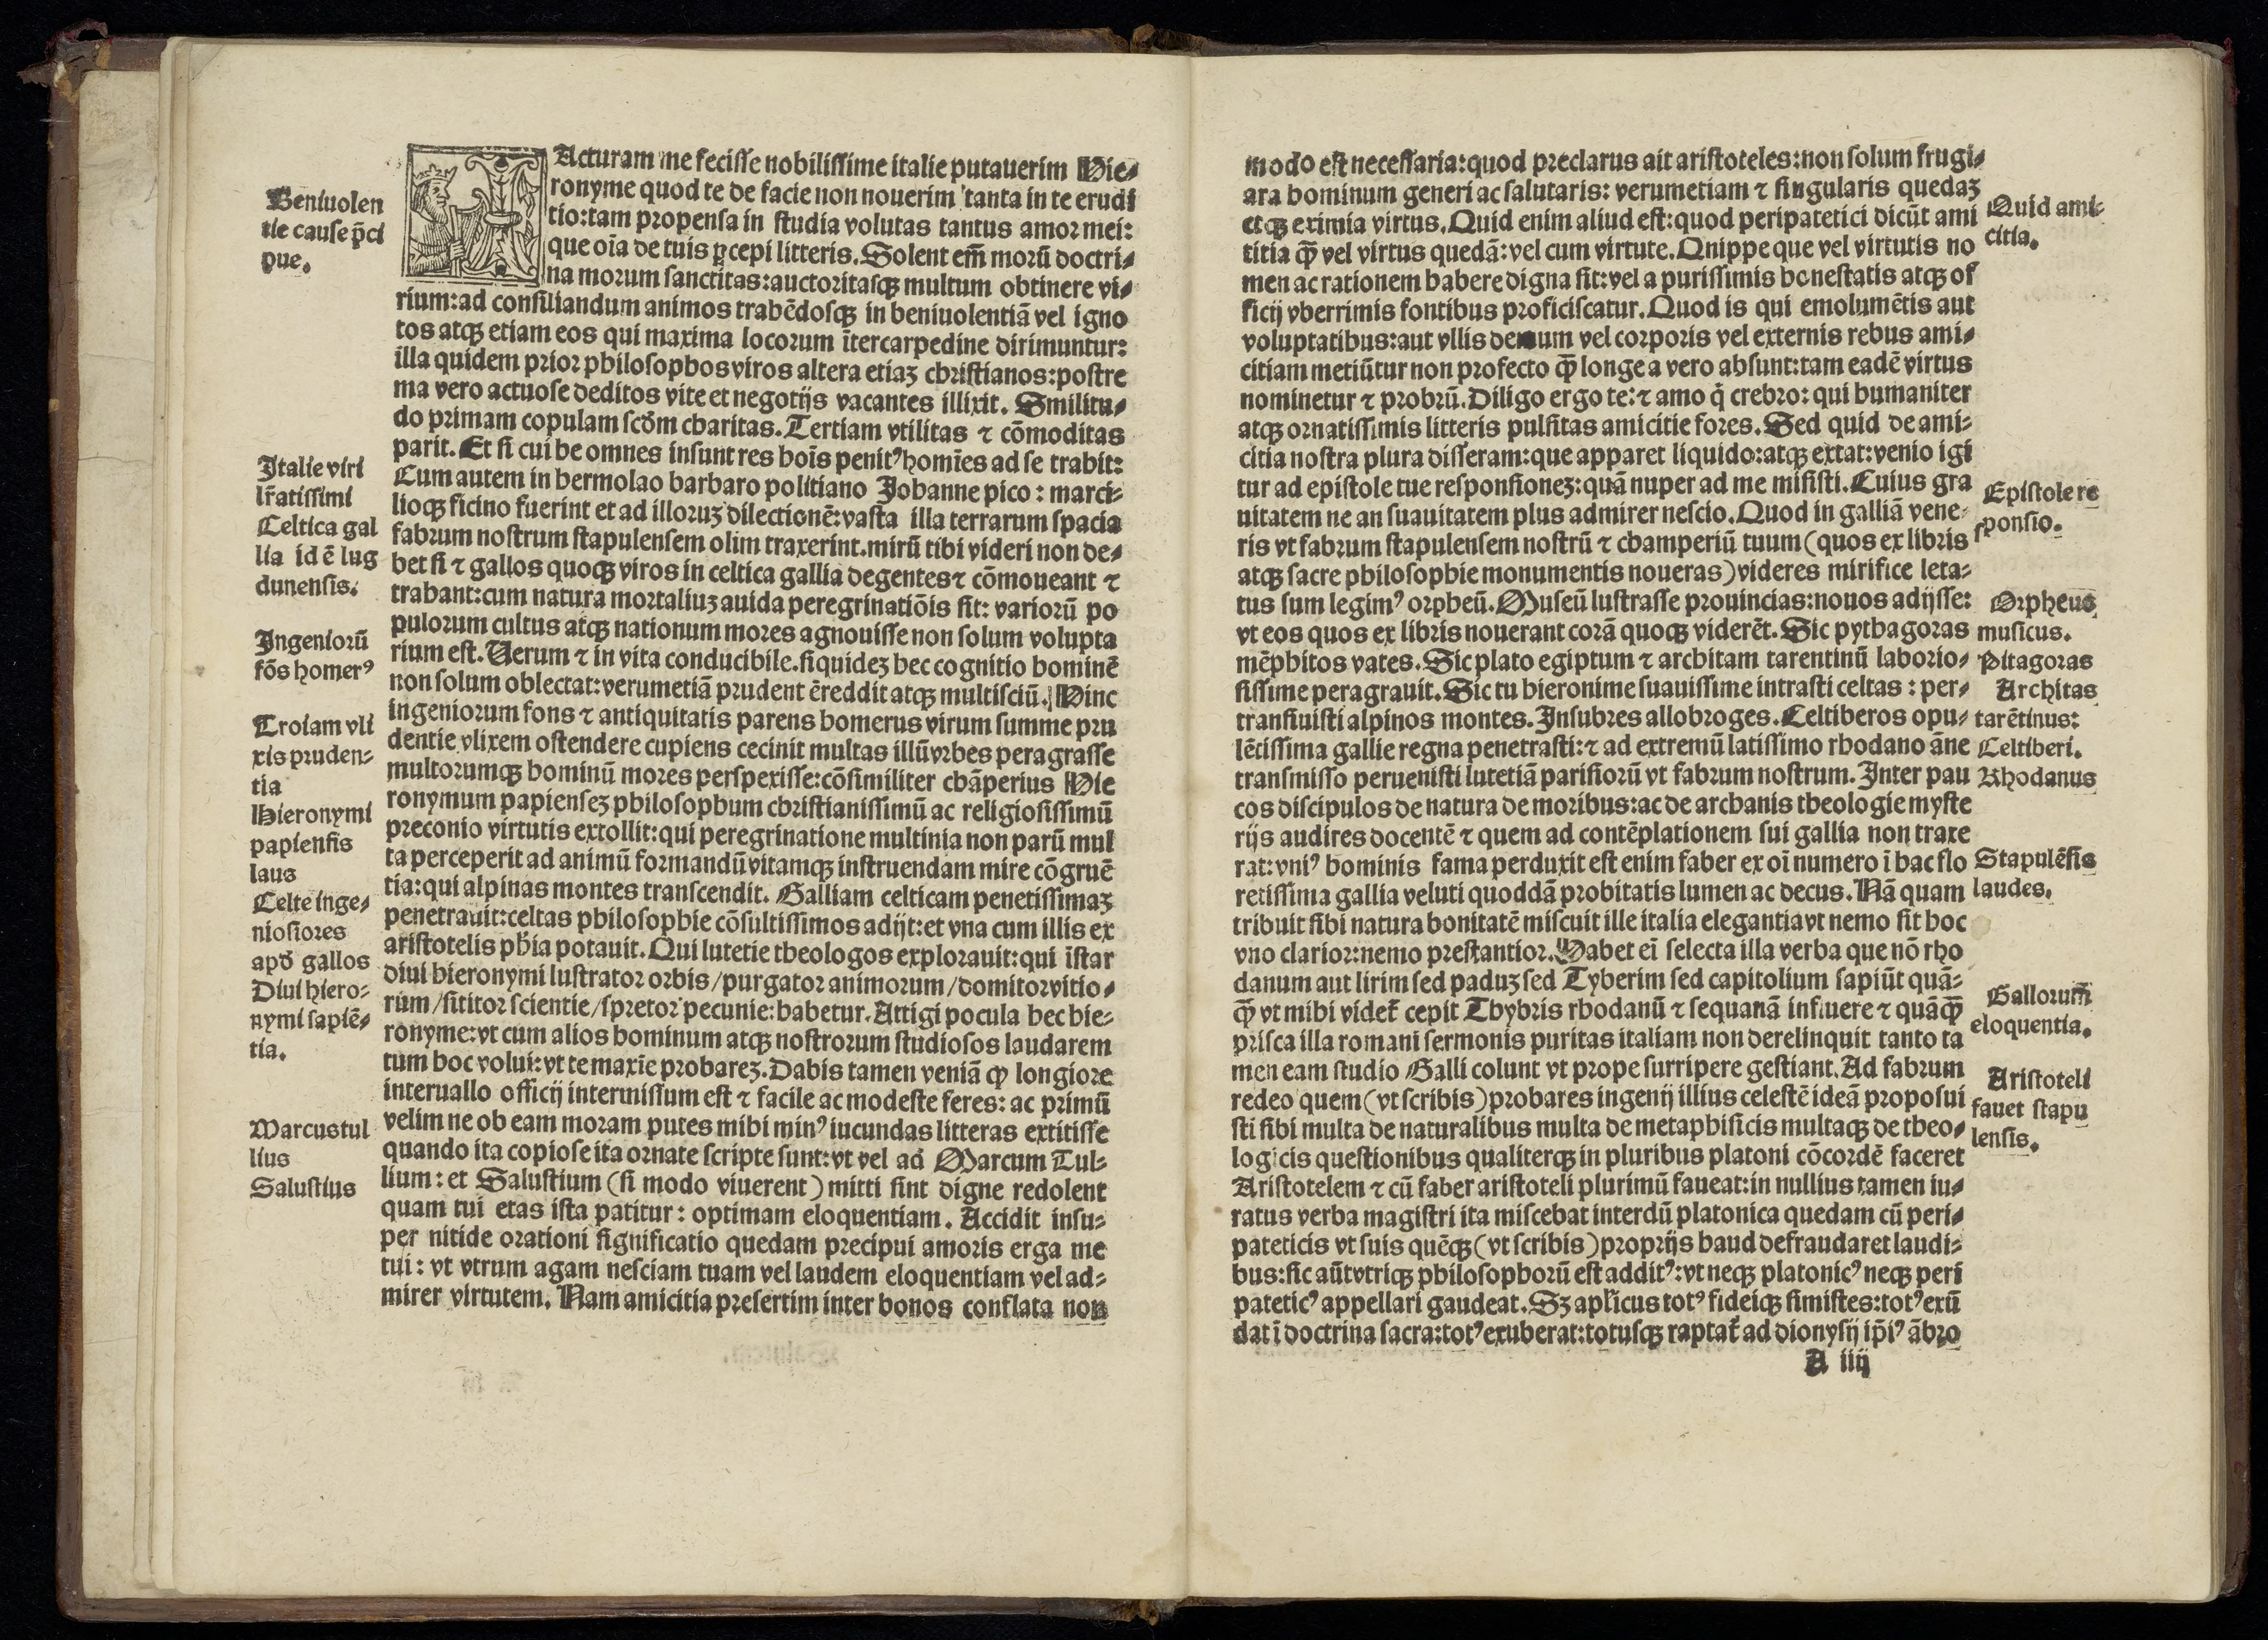 IActuram me fecisse nobilissime italie putauerim Hie-
ronyme quod te de facie non nouerim tanta in te erudi
tio:tam propensa in studia volutas tantus amor mei:
que oĩa de tuis ꝑcepi litteris. Solent em̃ morũ doctri-
na morum sanctitas:auctoritasqꝫ multum obtinere vi-
rium:ad consiliandum animos trahẽdosqꝫ in beniuolentiã vel igno
tos atqꝫ etiam eos qui maxima locorum ĩtercarpedine dirimuntur:
illa quidem prior philosophos viros altera etiaꝫ christianos:postre
ma vero actuose deditos vite et negotijs vacantes illixit. Smilitu-
do primam copulam scðm charitas. Tertiam vtilitas ⁊ cõmoditas
parit. Et si cui he omnes insunt res boĩs penitꝰ homĩes ad se trahit:
Cum autem in hermolao barbaro politiano Johanne pico : marci-
lioqꝫ ficino fuerint et ad illoruꝫ dilectionẽ: vasta illa terrarum spacia
fabrum nostrum stapulensem olim traxerint. mirũ tibi videri non de-
bet si ⁊ gallos quoqꝫ viros in celtica gallia degentes ⁊ cõmoueant ⁊
trahant:cum natura mortaliuꝫ auida peregrinatiõis sit: variorũ po
pulorum cultus atqꝫ nationum mores agnouisse non solum volupta
rium est. Verum ⁊ in vita conducibile. siquideꝫ hec cognitio hominẽ
non solum oblectat: verumetiã prudent ẽreddit atqꝫ multisciũ. Hinc
ingeniorum fons ⁊ antiquitatis parens homerus virum summe pru
dentie vlixem ostendere cupiens cecinit multas illũ vrbes peragrasse
multorumqꝫ hominũ mores perspexisse:cõsimiliter chãperius Hie
ronymum papienseꝫ philosophum christianissimũ ac religiosissimũ
preconio virtutis extollit:qui peregrinatione multinia non parũ mul
ta perceperit ad animũ formandũ vitamqꝫ instruendam mire cõgruẽ
tia:qui alpinas montes transcendit. Galliam celticam penetissimaꝫ
penetrauit:celtas philosophie cõsultissimos adijt:et vna cum illis ex
aristotelis ph̃ia potauit. Qui lutetie theologos explorauit:qui ĩstar
diui hieronymi lustrator orbis/purgator animorum/domitor vitio-
rum/sititor scientie/spretor pecunie: habetur. Attigi pocula hec hie-
ronyme:vt cum alios hominum atqꝫ nostrorum studiosos laudarem
tum hoc volui: vt te maxĩe probareꝫ. Dabis tamen veniã ꝙ longiore
interuallo officij intermissum est ⁊ facile ac modeste feres: ac primũ
velim ne ob eam moram putes mihi minꝰ iucundas litteras extitisse
quando ita copiose ita ornate scripte sunt:vt vel ad Marcum Tul-
lium: et Salustium (si modo viuerent) mitti sint digne redolent
quam tui etas ista patitur: optimam eloquentiam. Accidit insu-
per nitide orationi significatio quedam precipui amoris erga me
tui: vt vtrum agam nesciam tuam vel laudem eloquentiam vel ad-
mirer virtutem. Nam amicitia presertim inter bonos conflata non
Beniuolen
tie cause p̃ci
pue.
Italie viri
lr̃atissimi
Celtica gal
lia id ẽ lug
dunensis.
Ingeniorũ
fõs homerꝰ
Troiam vli
xis pruden-
tia
Hieronymi
papiensis
laus
Celte inge-
niosiores
apð gallos
Diui hiero-
nymi sapiẽ-
tia.
Marcus tul
lius
Salustius
modo est necessaria:quod preclarus ait aristoteles:non solum frugi-
ara hominum generi ac salutaris: verumetiam ⁊ singularis quedaꝫ
etqꝫ eximia virtus. Quid enim aliud est:quod peripatetici dicũt ami
titia ꝙ̃ vel virtus quedã: vel cum virtute. Qnippe que vel virtutis no
men ac rationem habere digna sit: vel a purissimis honestatis atqꝫ of
ficij vberrimis fontibus proficiscatur. Quod is qui emolumẽtis aut
voluptatibus:aut vllis demum vel corporis vel externis rebus ami-
citiam metiũtur non profecto ꝙ̃ longe a vero absunt:tam eadẽ virtus
nominetur ⁊ probrũ. Diligo ergo te:⁊ amo q̃ crebro: qui humaniter
atqꝫ ornatissimis litteris pulsitas amicitie fores. Sed quid de ami-
citia nostra plura disseram:que apparet liquido:atqꝫ extat:venio igi
tur ad epistole tue responsioneꝫ: quã nuper ad me misisti. Cuius gra
uitatem ne an suauitatem plus admirer nescio. Quod in galliã vene-
ris vt fabrum stapulensem nostrũ ⁊ champeriũ tuum (quos ex libris
atqꝫ sacre philosophie monumentis noueras) videres mirifice leta-
tus sum legimꝰ orpheũ. Museũ lustrasse prouincias:nouos adijsse:
vt eos quos ex libris nouerant corã quoqꝫ viderẽt. Sic pythagoras
mẽphitos vates. Sic plato egiptum ⁊ architam tarentinũ laborio-
sissime peragrauit. Sic tu hieronime suauissime intrasti celtas : per-
transiuisti alpinos montes. Insubres allobroges. Celtiberos opu-
lẽtissima gallie regna penetrasti:⁊ ad extremũ latissimo rhodano ãne
transmisso peruenisti lutetiã parisiorũ vt fabrum nostrum. Inter pau
cos discipulos de natura de moribus:ac de archanis theologie myste
rijs audires docentẽ ⁊ quem ad contẽplationem sui gallia non traxe
rat:vniꝰ hominis fama perduxit est enim faber ex oĩ numero ĩ hac flo
retissima gallia veluti quoddã probitatis lumen ac decus. Nã quam
tribuit sibi natura bonitatẽ miscuit ille italia elegantia vt nemo sit hoc
vno clarior:nemo prestantior. Habet eĩ selecta illa verba que nõ rho
danum aut lirim sed paduꝫ sed Tyberim sed capitolium sapiũt quã-
ꝙ̃ vt mihi videt̃ cepit Thybris rhodanũ ⁊ sequanã influere ⁊ quãꝙ̃
prisca illa romani sermonis puritas italiam non derelinquit tanto ta
men eam studio Galli colunt vt prope surripere gestiant. Ad fabrum
redeo quem (vt scribis) probares ingenij illius celestẽ ideã proposui
sti sibi multa de naturalibus multa de metaphisicis multaqꝫ de theo-
logicis questionibus qualiterqꝫ in pluribus platoni cõcordẽ faceret
Aristotelem ⁊ cũ faber aristoteli plurimũ faueat:in nullius tamen iu-
ratus verba magistri ita miscebat interdũ platonica quedam cũ peri-
pateticis vt suis quẽqꝫ (vt scribis) proprijs haud defraudaret laudi-
bus:sic aũt vtriqꝫ philosophorũ est additꝰ:vt neqꝫ platonicꝰ neqꝫ peri
pateticꝰ appellari gaudeat. Sꝫ apl̃icus totꝰ fideiqꝫ simistes:totꝰ exũ
dat ĩ doctrina sacra:totꝰ exuberat:totusqꝫ raptat̃ ad dionysij ip̃iꝰ ãbro
A iiij
Quid ami-
citia.
Epistole re
sponsio.
Orpheus
musicus.
Pitagoras
Architas
tarẽtinus:
Celtiberi.
Rhodanus
Stapulẽsis
laudes.
Gallorum̃
eloquentia.
Aristoteli
fauet stapu
lensis.